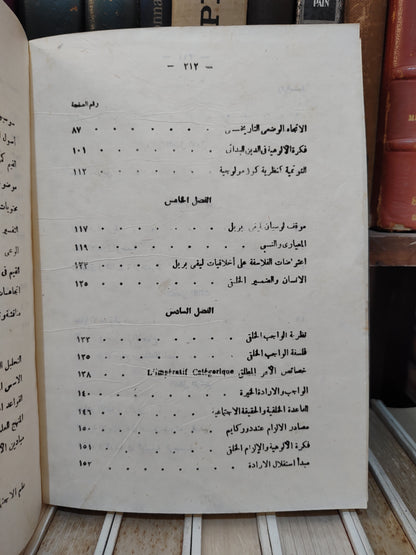 PAIN
— ٢١٢ —
رقم الصفحة
الاتجاه الوضعى التاريخى . . . . . . . ٨٧
فكرة الألوهية فى الدين البدائى . . . . . ١٠١
التوتمية كنظرية كوزمولوجية . . . . . ١١٢
الفصل الخامس
موقف لوسيان ليفى بريل . . . . . . ١١٧
المعيارى والنسبى . . . . . . . ١١٩
اعتراضات الفلاسفة على أخلاقيات ليفى بريل . . . ١٢٢
الانسان والضمير الخلقى . . . . . . ١٢٥
الفصل السادس
نظرية الواجب الخلقى . . . . . . . ١٣٢
فلسفة الواجب الخلقى . . . . . . . ١٣٥
خصائص الأمر المطلق L'impératif Catégorique . . . ١٣٨
الواجب والارادة الخيرة . . . . . . . ١٤٠
القاعدة الخلقية والحقيقة الاجتماعية . . . . . ١٤٦
مصادر الالزام عند دوركايم . . . . . . ١٥٠
فكرة الألوهية والإلزام الخلقى . . . . . ١٥١
مبدأ استقلال الارادة . . . . . . . ١٥٢